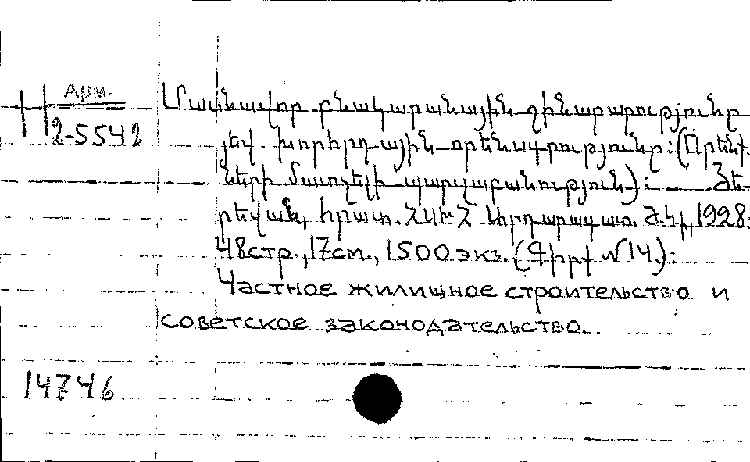 Арм.
2-5542
Մասնավոր բնակարանային շինարարությունը
յեվ խորհրդային որենսդրությունը: (Որենք-
ների մատչելի պարզաբանություն): Յե-
րեվան, հրատ. 1928.
48стр., 17см., 1500 экз. (Գիրք №14.):
Частное жилищное строительство и
советское законодательство.
14746